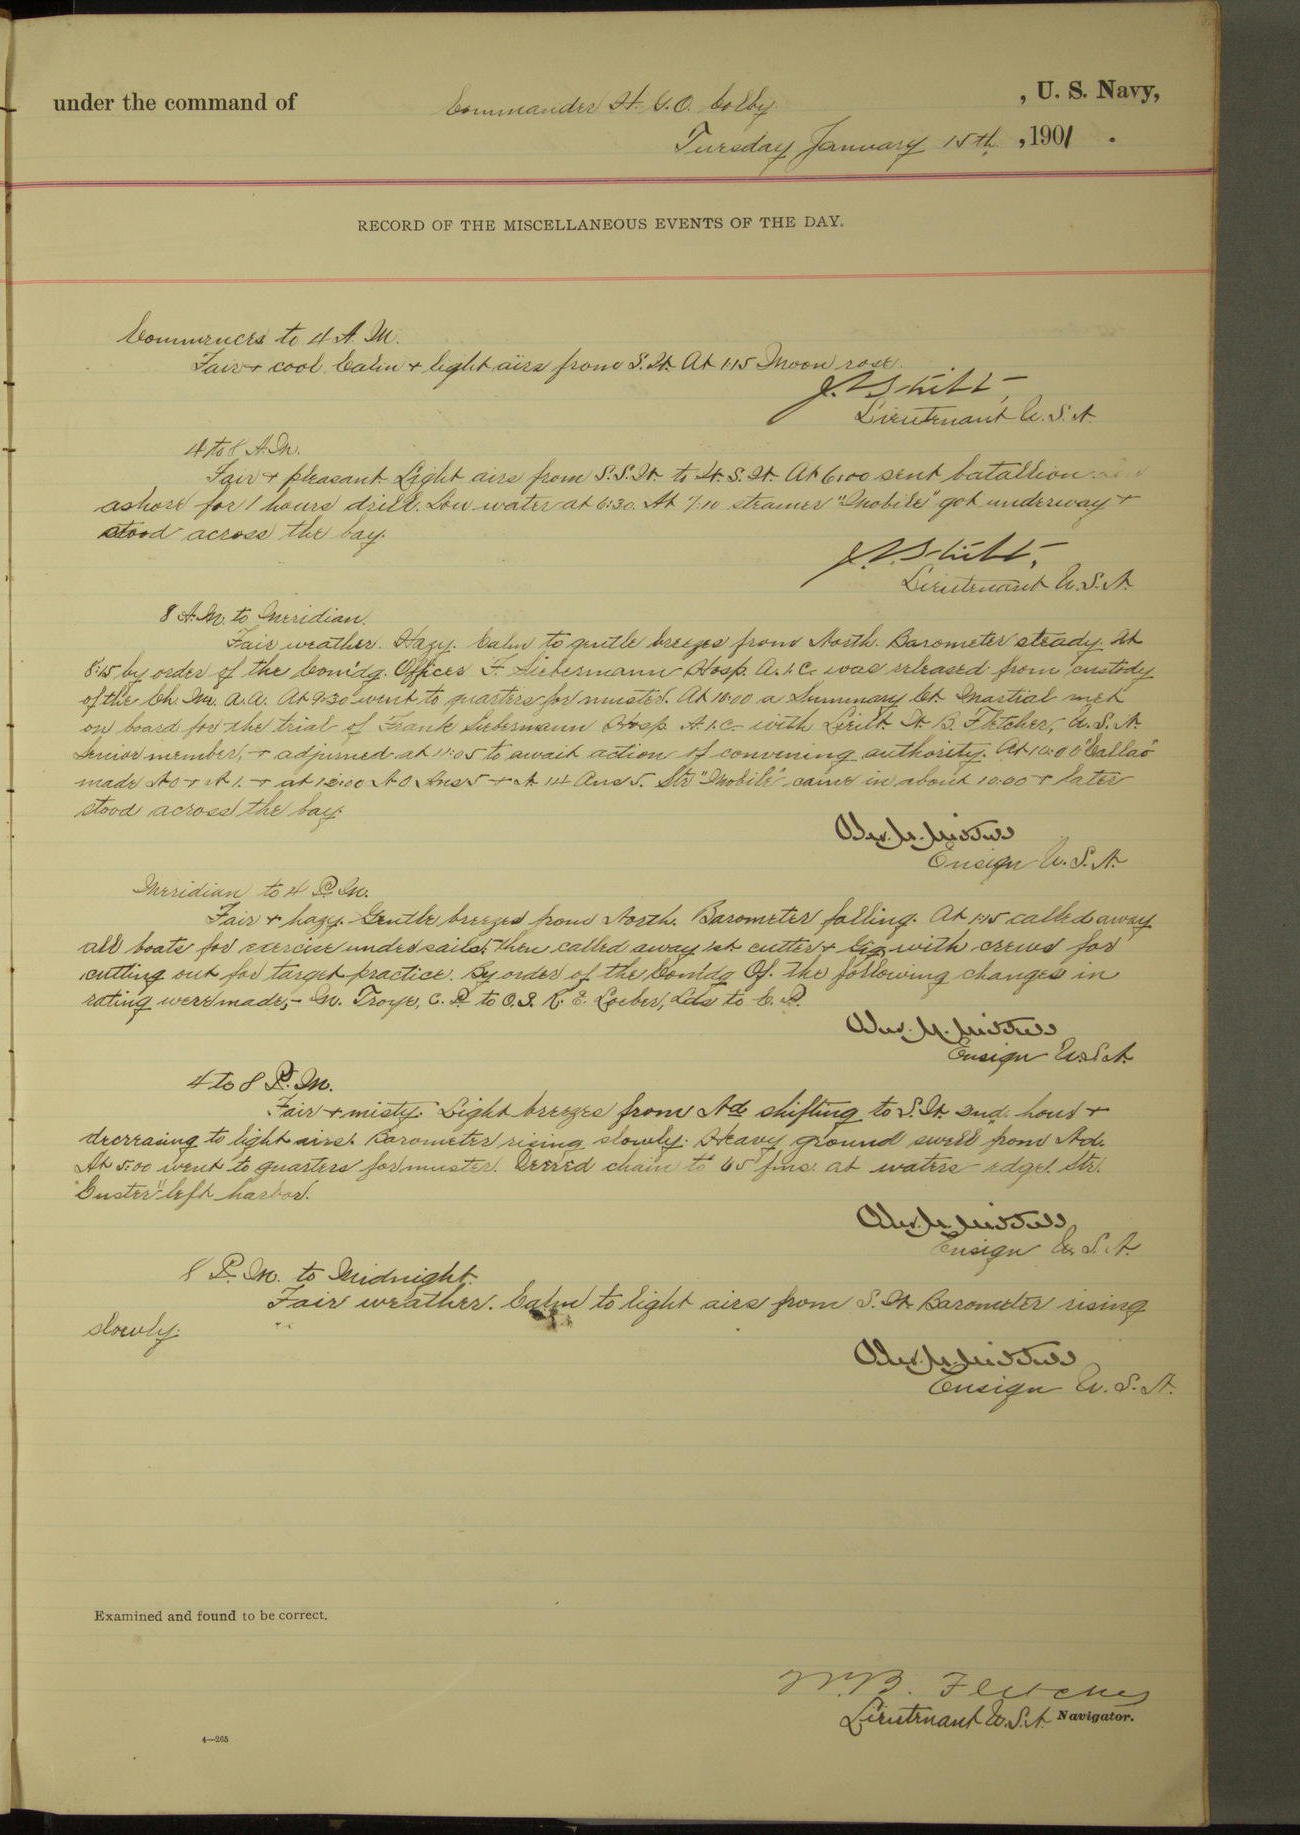 under the command of Commander H. G. O. Colby , U. S. Navy,
Tuesday January 15th , 1901 .
RECORD OF THE MISCELLANEOUS EVENTS OF THE DAY.
Commences to 4 A. M.
Fair + cool. Calm + light airs from S. W. At 1:15 Moon rose.
Lieutenant U. S. N.
4 to 8 A. M.
Fair + pleasant. Light airs from S. S. W. to W. S. W. At 6:00 sent batallion
ashore for 1 hours drill. Low water at 6:30. At 7:10 steamer "Mobile" got underway +
stood across the bay.
Lieutenant U. S. N.
8 A. M. to Meridian.
Fair weather. Hazy. Calm to gentle breezes from North. Barometer steady. At
8:15 by order of the Com'd'g. Officer F. Siebermann Hosp. A. 1. C. was released from custody
of the Ch. M. A. A. At 9:30 went to quarters for muster. At 10:00 a Summary Ct. Martial met
on board for the trial of Frank Siebermann Hosp. A. 1. C. with Lieut. W. B. Fletcher, U. S. N.
Senior member, + adjourned at 11:05 to await action of convening authority. At 10:00 "Callao"
made + at 12:00 Str "Mobile" came in about 10:00 + later
stood across the bay.
Ensign U. S. N.
Meridian to 4 P. M.
Fair + hazy. Gentle breezes from North. Barometer falling. At 1:15 called away
all boats for exercise under sails. Then called away 1st cutter + Gig with crews for
cutting out for target practice. By order of the Com'd'g Of. the following changes in
rating were made,- M. Troye, C. P. to O. S. R. E. Loeber, Lds to C. P.
Ensign U. S. N.
4 to 8 P. M.
Fair + misty. Light breezes from Nd. shifting to S. W. 2nd. hour +
decreasing to light airs. Barometer rising slowly. Heavy ground swell from Nd.
At 5:00 went to quarters for muster. Veered chain to 65 fms. at waters edge. Str.
"Custer" left harbor.
Ensign U. S. N.
8 P. M. to Midnight.
Fair weather. Calm to light airs from S. W. Barometer rising
slowly.
Ensign U. S. N.
Examined and found to be correct.
W. B. Fletcher
Lieutenant U. S. N. Navigator.
4—265